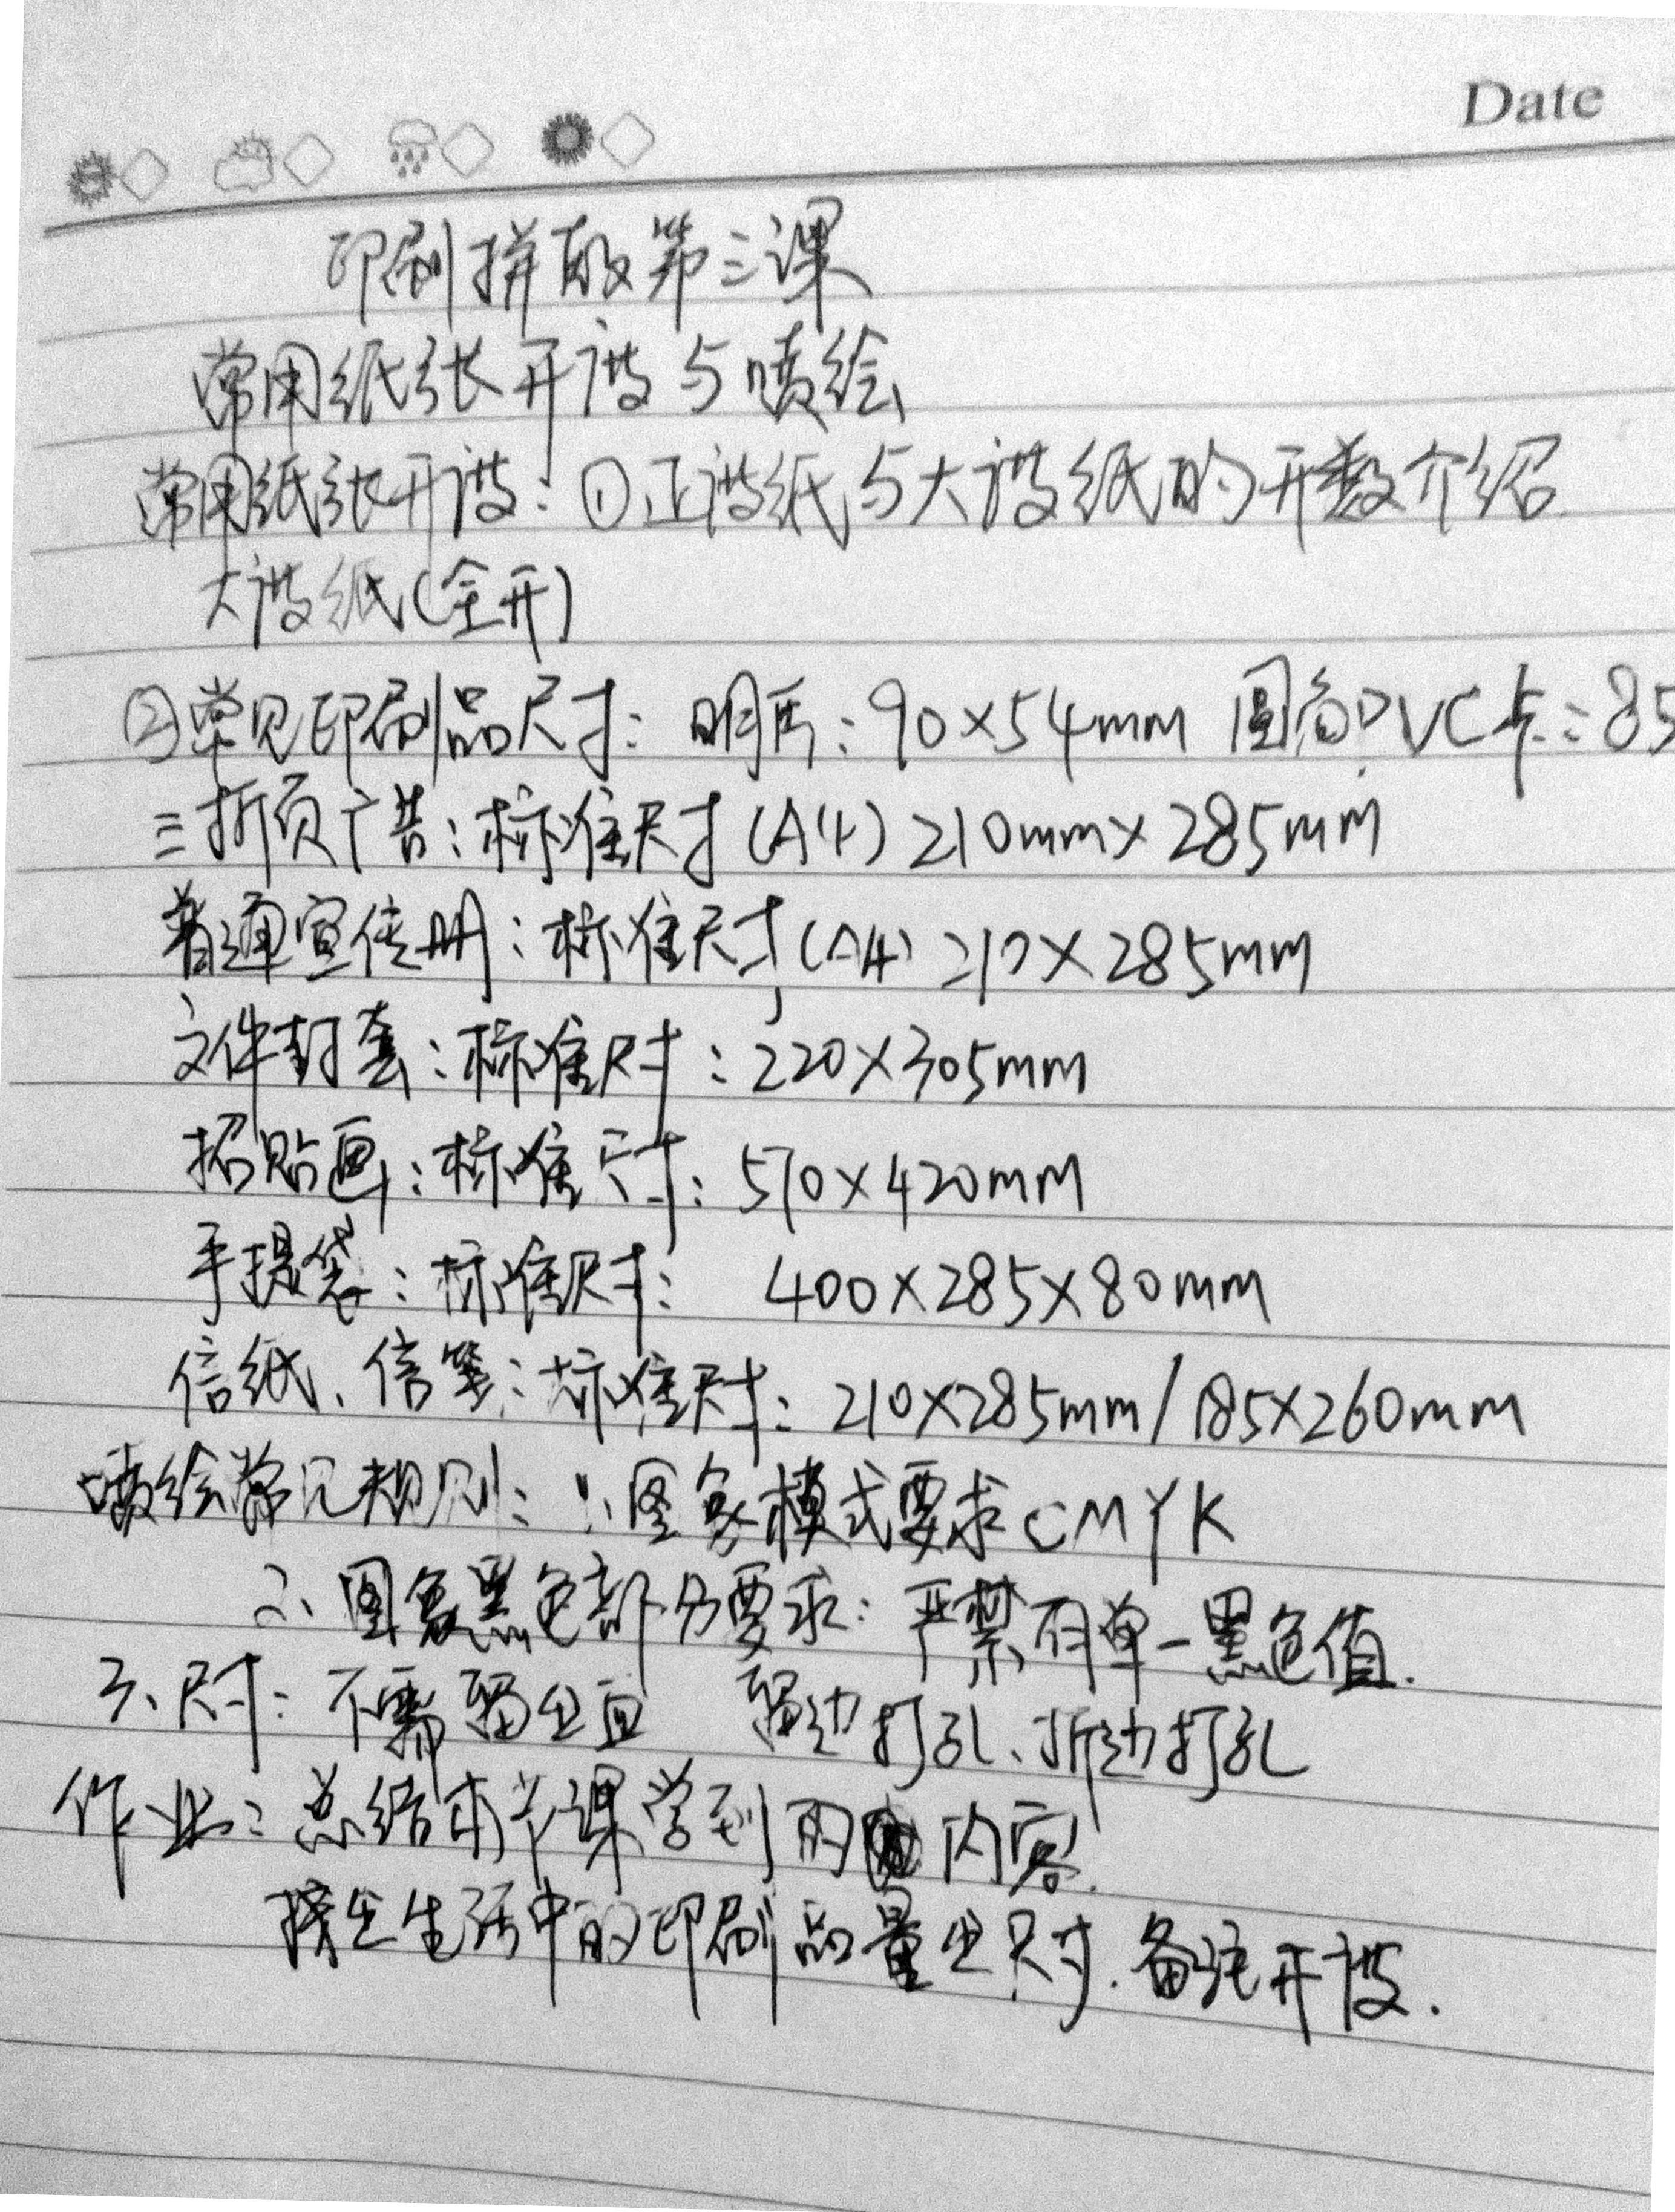 Date
印刷拼版第三课
常用纸张开设与喷绘
常用纸张开度:①正度纸与大度纸的开数介绍.
大度纸(全开)
②常见印刷品尺寸: 明片:90×54mm 圆角PVC卡:85
三折页广告:标准尺寸(A4)210mm×285mm
普通宣传册:标准尺寸(A4)210×285mm
文件封套:标准尺寸:220×305mm
招贴画:标准尺寸:570×420mm
手提袋:标准尺寸: 400×285×80mm
信纸、信笺:标准尺寸:210×285mm/185×260mm
喷绘常见规则:1、图象模式要求CMYK
2、图象黑色部分要求:严禁有单一黑色值.
3、尺寸:不需留出血 留边打孔、折边打孔
作业:总结本节课学到的内容.
找生活中的印刷品量出尺寸.备注开度.